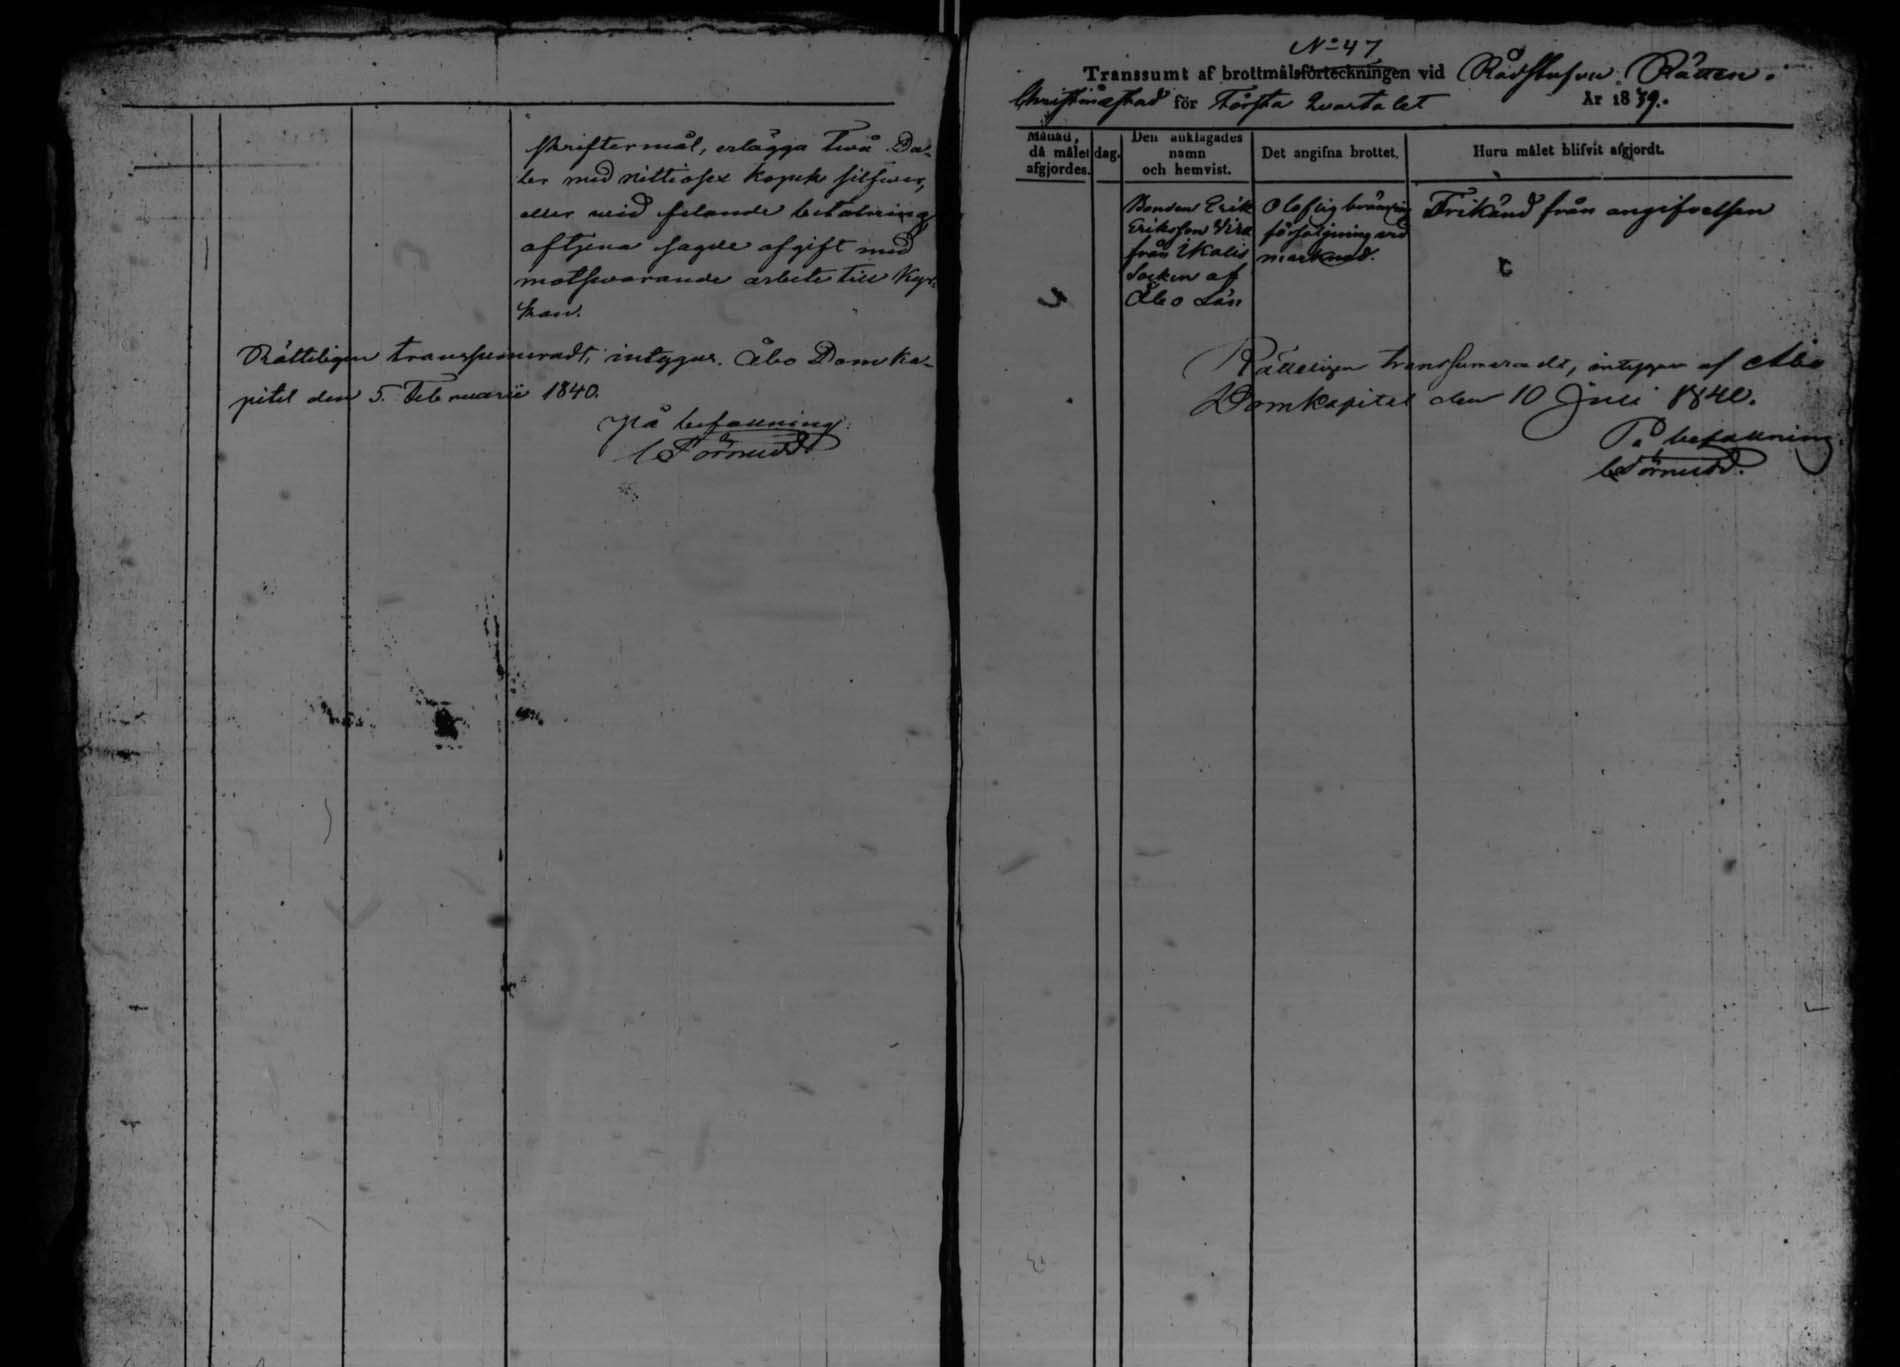 skriftermål, erlägga Twå Da-
ler med nittiosex kopek silfwer,
eller wid felande betalning
aftjena sagde afgift med
motswarande arbete till Kyr-
kan.
Rätteligen transsumeradt, intygar. Åbo Domka-
pitel den 5. Februarii 1840.
På befallning:
C Törnudd.
No 47
Transsumt af brottmålsförteckningen vid Rådstufvu Rätten i
Christinæstad för Första Quartalet År 1839.
Månad, då målet afgjordes. dag. Den anklagades namn och hemvist. Det angifna brottet. Huru målet blifvit afgjordt.
Bonden Erik Olaflig bränvins Frikänd från angifvelsen
Eriksson försäljning vid
från Ikalis marknad.
Socken af
Åbo Län
Rätteligen transsumeradt, intygar af Åbo
Domkapitel den 10 Juni 1840.
På befallning:
C Törnudd.